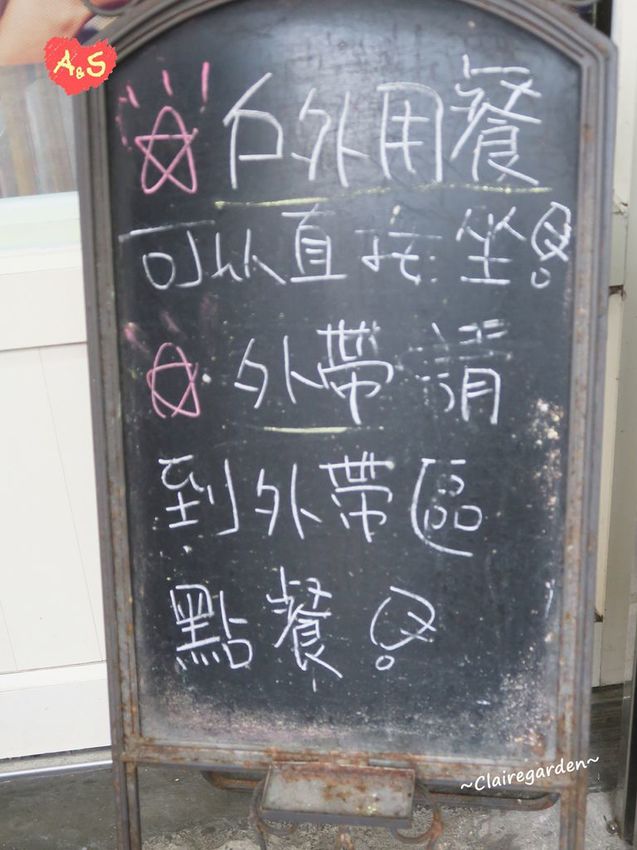 A&S
☆戶外用餐
可以直接坐!
☆外帶請
到外帶區
點餐!
~Clairegarden~